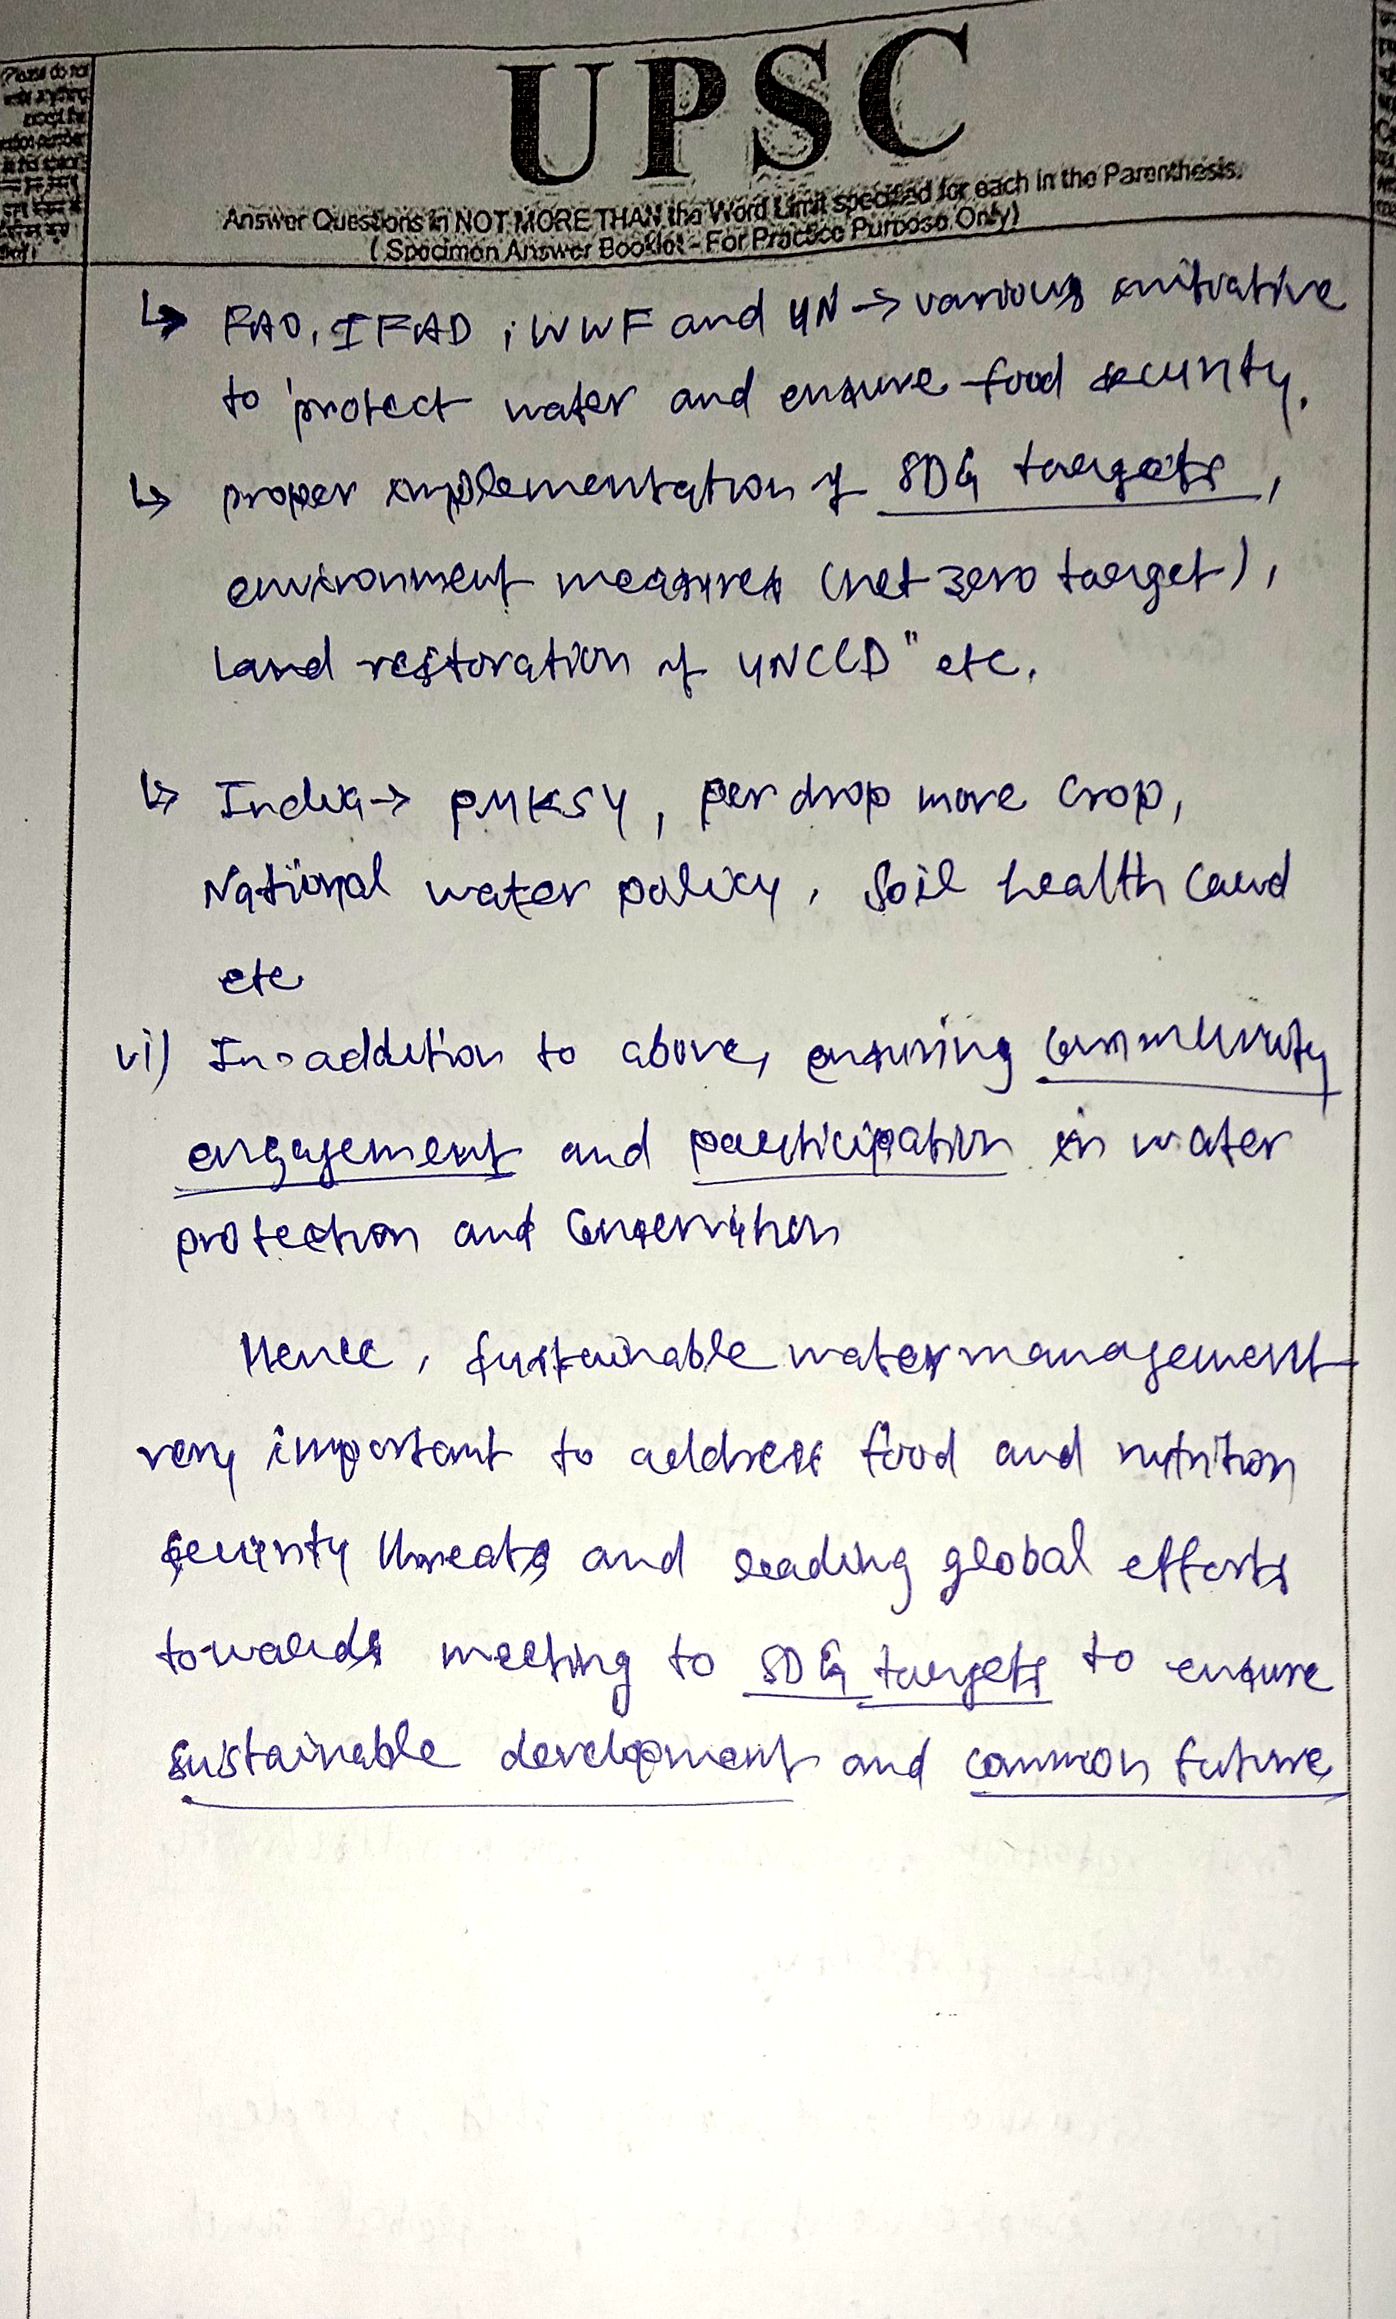 UPSC
Answer Questions in NOT MORE THAN the Word Limit specified for each in the Parenthesis.
(Specimen Answer Booklet - For Practice Purpose Only)
(Please do not
write anything
except the
question number
in this space)
↳ FAO, IFAD, WWF and UN → various initiative
to protect water and ensure food security.
↳ proper implementation of SDG targets,
environment measures (net zero target),
Land restoration of UNCCD" etc.
↳ India → PMKSY, per drop more crop,
National water policy, Soil health Card
etc
vi) In addition to above, ensuring community
engagement and participation in water
protection and conservation
Hence, sustainable water management
very important to address food and nutrition
security threats and leading global efforts
towards meeting to SDG targets to ensure
sustainable development and common future